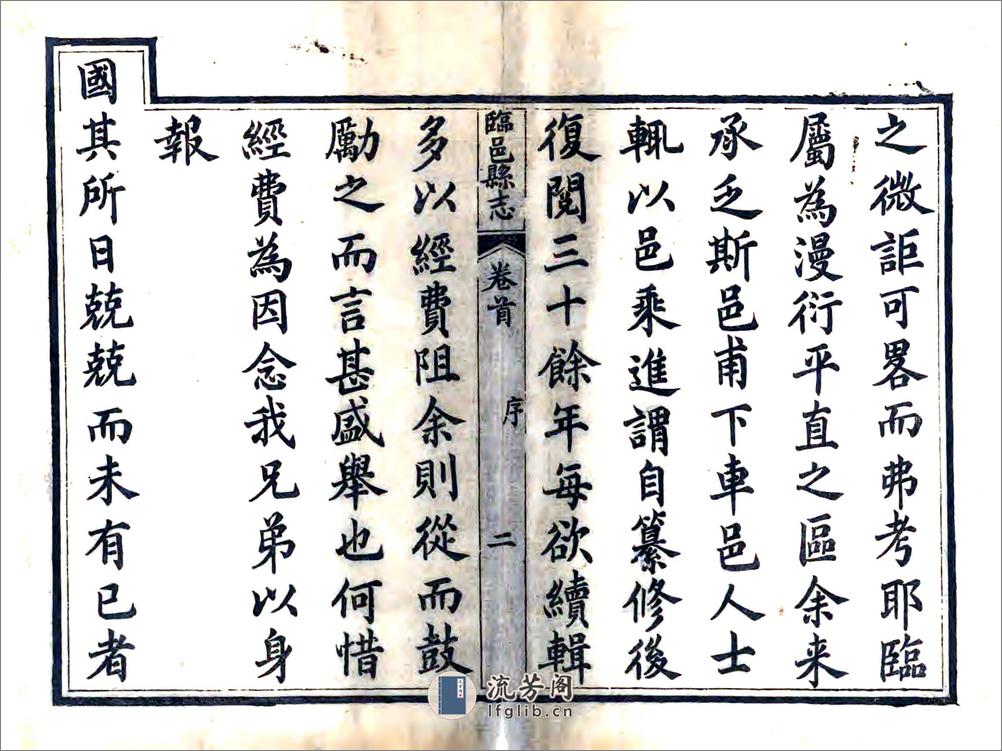 之微詎可畧而弗考耶臨
屬為漫衍平直之區余来
承乏斯邑甫下車邑人士
輒以邑乘進謂自纂修後
復閱三十餘年每欲續輯
臨邑縣志 卷首 序 二
多以經費阻余則從而鼓
勵之而言甚盛舉也何惜
經費為因念我兄弟以身
報
國其所日兢兢而未有已者
流芳阁
lfglib.cn